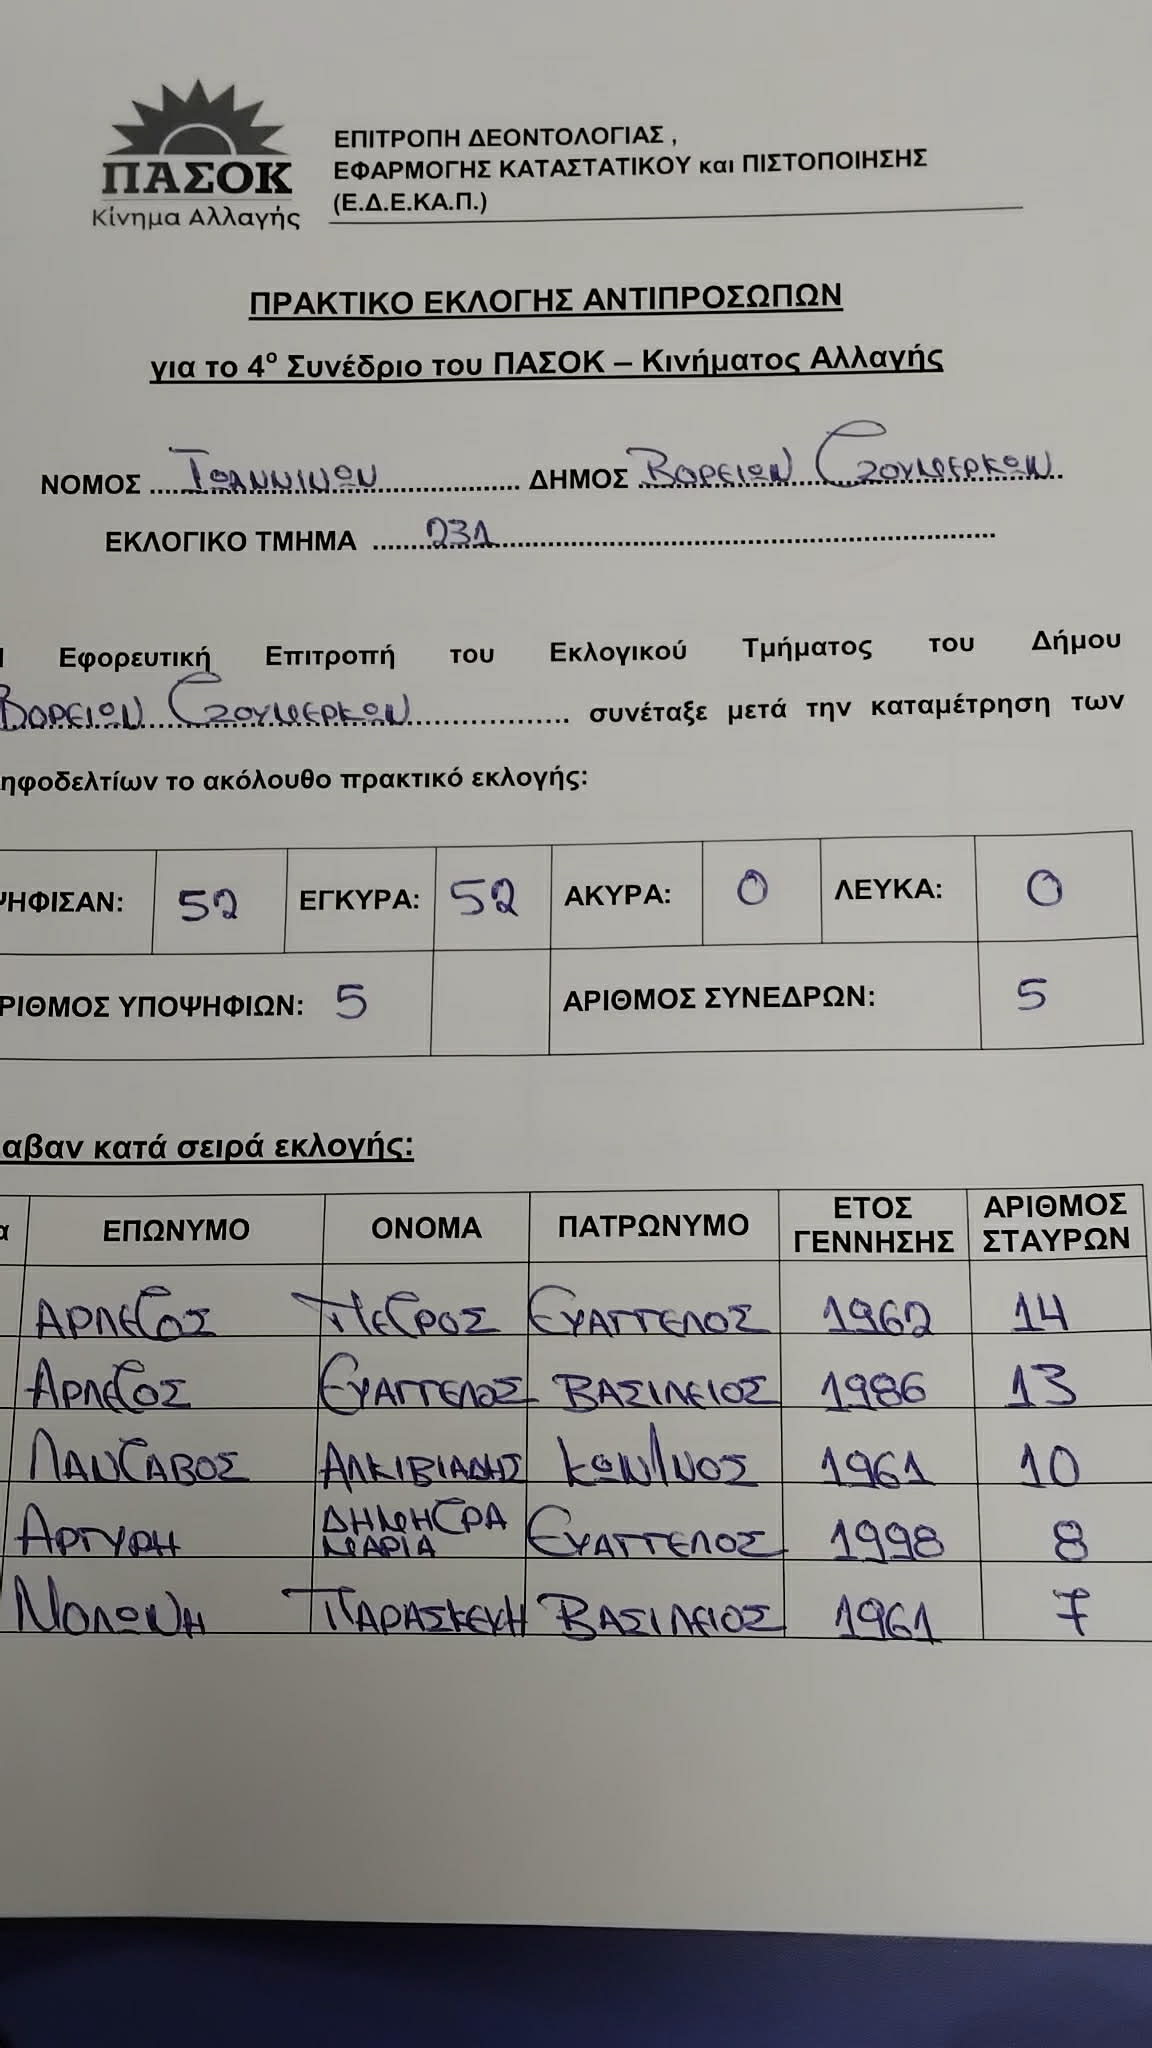 ΠΑΣΟΚ
Κίνημα Αλλαγής
ΕΠΙΤΡΟΠΗ ΔΕΟΝΤΟΛΟΓΙΑΣ ,
ΕΦΑΡΜΟΓΗΣ ΚΑΤΑΣΤΑΤΙΚΟΥ και ΠΙΣΤΟΠΟΙΗΣΗΣ
(Ε.Δ.Ε.ΚΑ.Π.)
ΠΡΑΚΤΙΚΟ ΕΚΛΟΓΗΣ ΑΝΤΙΠΡΟΣΩΠΩΝ
για το 4ο Συνέδριο του ΠΑΣΟΚ – Κινήματος Αλλαγής
ΝΟΜΟΣ ΙΩΑΝΝΙΝΩΝ ΔΗΜΟΣ ΒΟΡΕΙΩΝ ΤΖΟΥΜΕΡΚΩΝ
ΕΚΛΟΓΙΚΟ ΤΜΗΜΑ 231
Εφορευτική Επιτροπή του Εκλογικού Τμήματος του Δήμου
ΒΟΡΕΙΩΝ ΤΖΟΥΜΕΡΚΩΝ συνέταξε μετά την καταμέτρηση των
ηφοδελτίων το ακόλουθο πρακτικό εκλογής:
ΨΗΦΙΣΑΝ: 52 ΕΓΚΥΡΑ: 52 ΑΚΥΡΑ: 0 ΛΕΥΚΑ: 0
ΡΙΘΜΟΣ ΥΠΟΨΗΦΙΩΝ: 5 ΑΡΙΘΜΟΣ ΣΥΝΕΔΡΩΝ: 5
αβαν κατά σειρά εκλογής:
α ΕΠΩΝΥΜΟ ΟΝΟΜΑ ΠΑΤΡΩΝΥΜΟ ΕΤΟΣ ΓΕΝΝΗΣΗΣ ΑΡΙΘΜΟΣ ΣΤΑΥΡΩΝ
ΑΡΛΕΤΟΣ ΠΕΤΡΟΣ ΕΥΑΓΓΕΛΟΣ 1962 14
ΑΡΛΕΤΟΣ ΕΥΑΓΓΕΛΟΣ ΒΑΣΙΛΕΙΟΣ 1986 13
ΛΑΝΤΑΒΟΣ ΑΛΚΙΒΙΑΔΗΣ ΚΩΝ/ΝΟΣ 1961 10
ΑΡΓΥΡΗ ΔΗΜΗΤΡΑ ΜΑΡΙΑ ΕΥΑΓΓΕΛΟΣ 1998 8
ΜΟΛΩΝΗ ΠΑΡΑΣΚΕΥΗ ΒΑΣΙΛΕΙΟΣ 1961 7